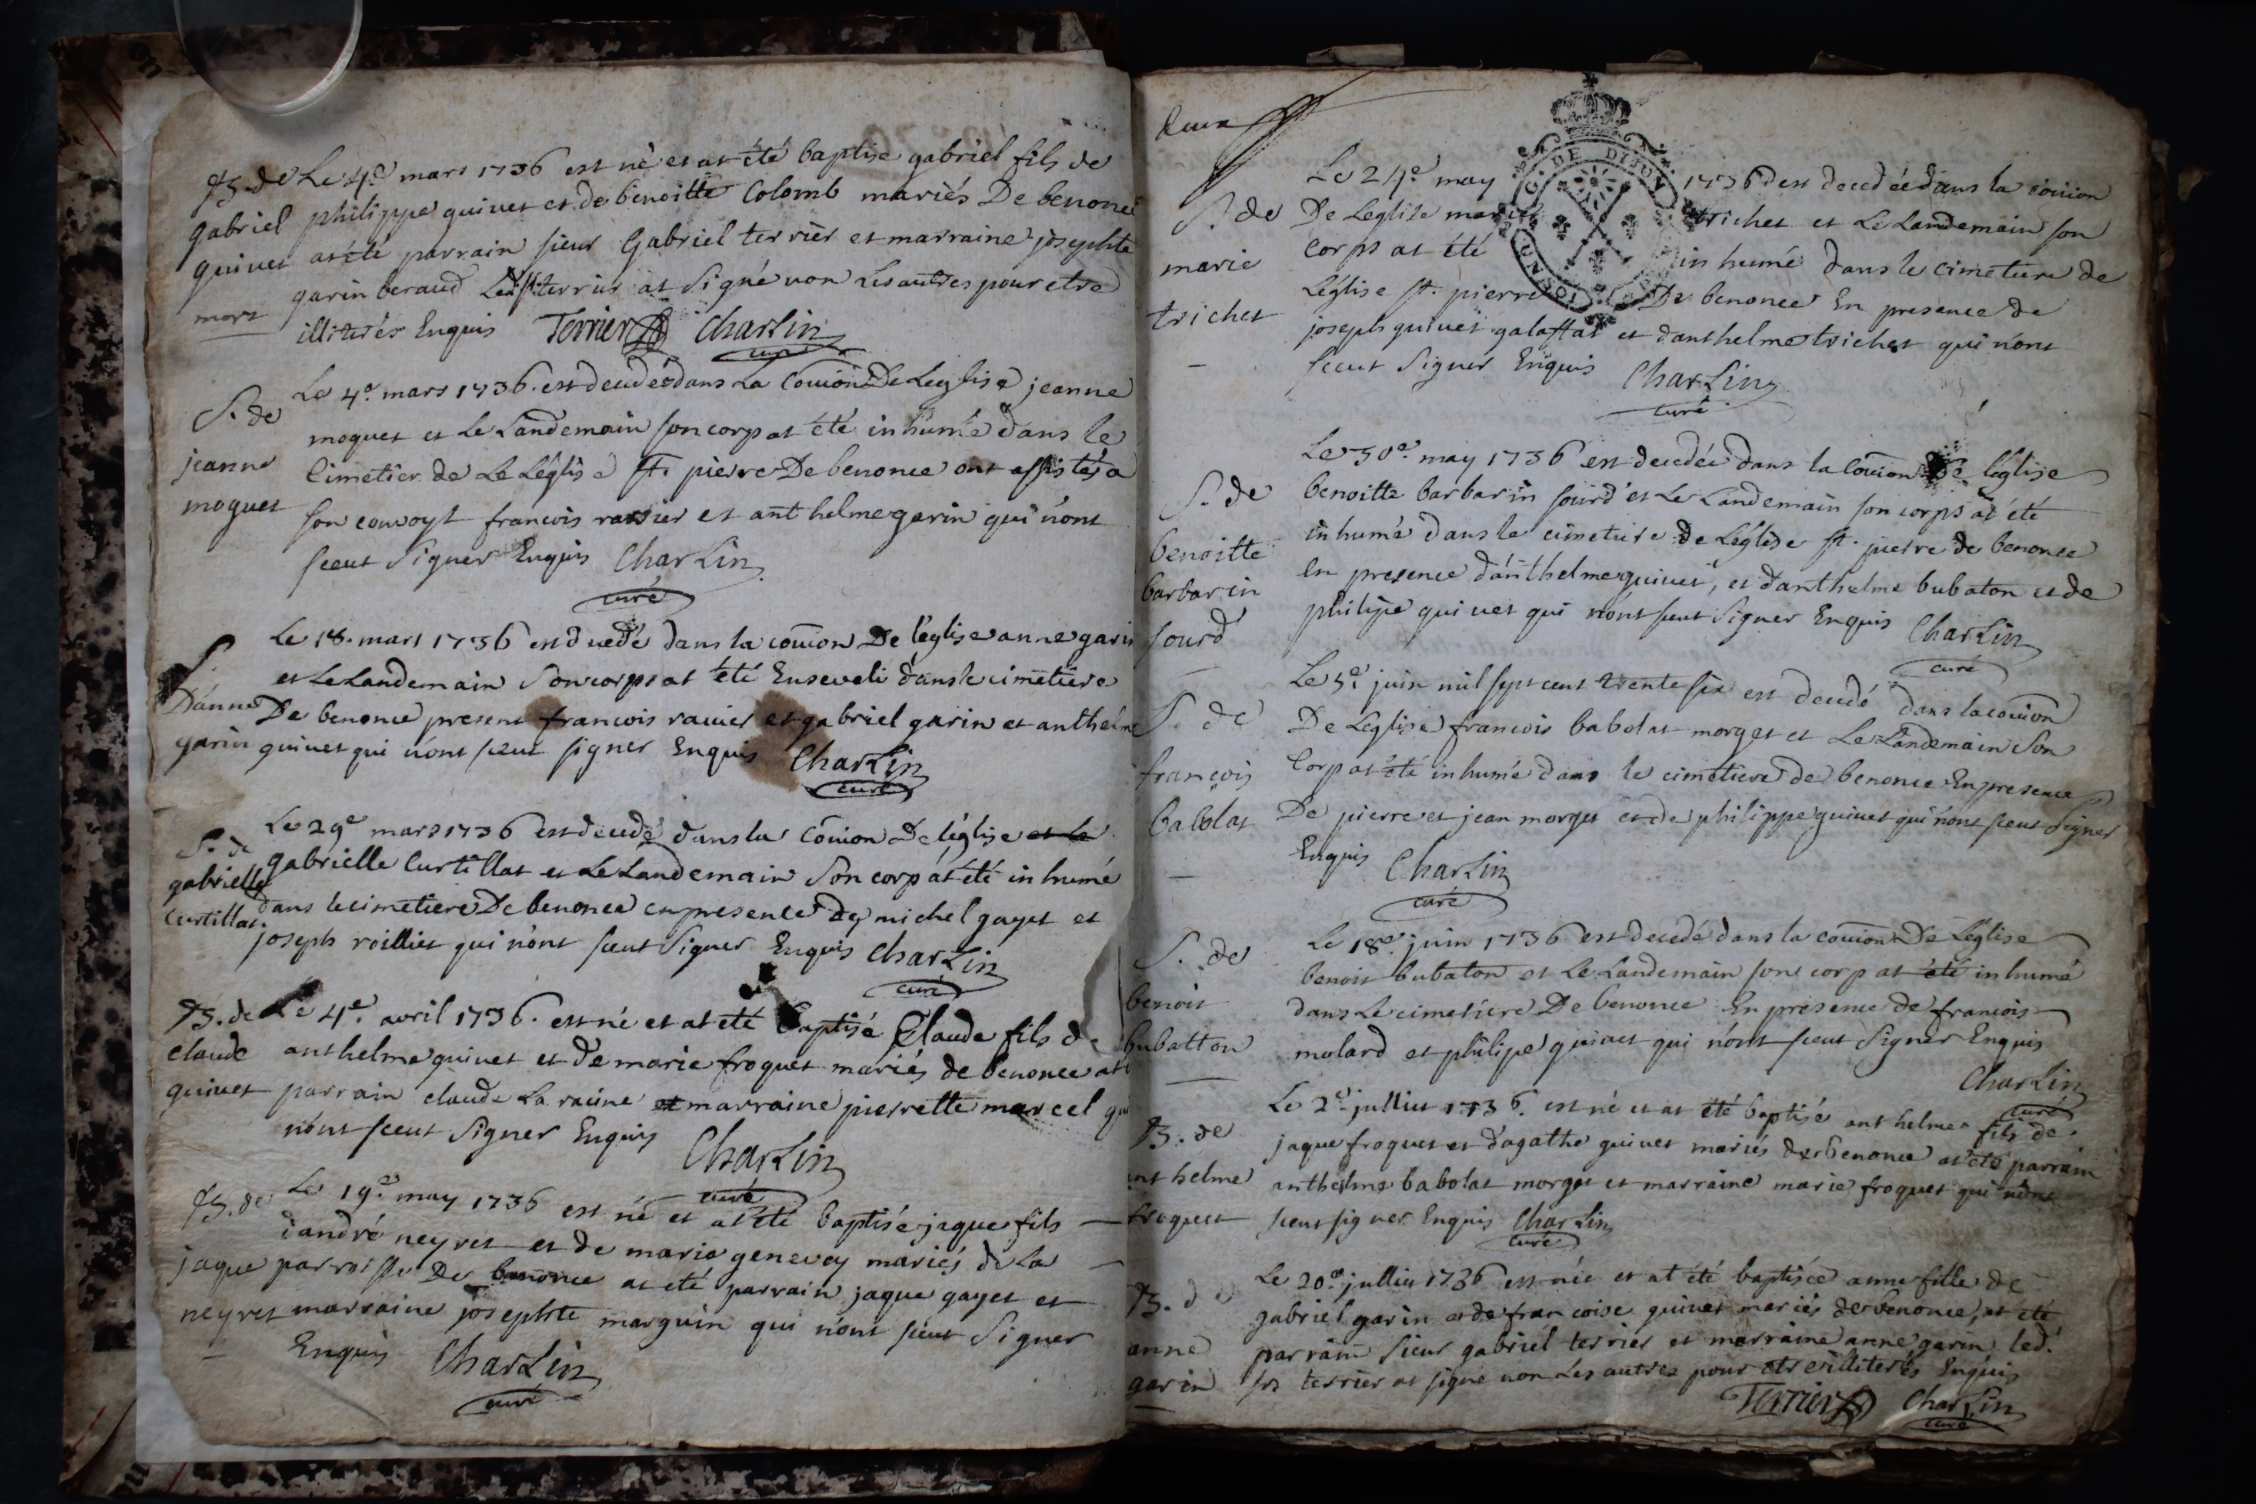 B. de
gabriel
quivet
mort
Le 4e mars 1736 est né et at été baptise gabriel fils de
philippe quivet et de benoitte Colomb mariés De benonce
at été parrain sieur Gabriel terrier et marraine josephte
garin beraud Led. sr terrier at signé non Les autres pour etre
illiterés Enquis Terrier Charlin
curé
S. de
jeanne
moquet
Le 4e mars 1736. est decedée dans La Com̄ion De Leglise jeanne
moquet et Le Landemain son corp at été inhumé dans le
Cimetier de Le Léglise St. pierre De benonce ont assistés a
son convoyt francois ravier et anthelme garin qui n'ont
sceut Signer Enquis Charlin
curé
S.
D'anne
garin
Le 18. mars 1736 est decedé dans la com̄ion De l'église anne garin
et Le Landemain Son corps at été Enseveli dans le cimetiere
De benonce present francois ravier et gabriel garin et anthelme
quivet qui n'ont sceut signer Enquis Charlin
curé
S. de
gabrielle
Curtillat
Le 29e mars 1736 est decedé dans la Com̄ion De léglise et le
gabrielle Curtillat et Le Landemain Son corp at été inhumé
dans le cimetiere De benonce en presence de michel gayet et
joseph roilliet qui n'ont sceut Signer Enquis Charlin
curé
B. de
claude
quivet
Le 4e. avril 1736. est né et at eté baptisé Claude fils de
anthelme quivet et de marie froquet mariés de benonce at
parrain claude La racine et marraine pierrette marcel qui
n'ont sceut Signer Enquis
Charlin
curé
B. de
jaque
neyret
Le 19e. may 1736 est né et at été baptisé jaque fils
d'andré neyret et de marie genevoy mariés de La
parroisse De benonce at eté parrain jaque gayet et
marraine josephte marguin qui n'ont sceut Signer
Enquis Charlin
curé
deux
S. de
marie
trichet
Le 24e may 1736 est decedée dans la com̄ion
De Leglise marie trichet et Le Landemain son
Corps at été inhumé dans le cimetiere de
Léglise St. pierre De benonce En presence de
joseph quivet galaffat et d'anthelme trichet qui n'ont
sceut Signer Enquis Charlin
curé
G. DE DIJON
S. de
benoitte
barbarin
sourd
Le 30e. may 1736 est decedée dans la Com̄ion De léglise
benoitte barbarin sourd et Le Landemain son corps at été
inhumé dans le cimetiere de Léglise St. pierre de benonce
En presence d'anthelme quivet, et d'anthelme bubaton et de
philipe quivet qui n'ont sceut Signer Enquis Charlin
curé
S. de
françois
babolat
Le 5e. juin mil sept cent trente six est decedé dans la com̄ion
De Leglise francois babolat morget et Le Landemain Son
Corp at été inhumé dans le cimetiere de benonce En presence
De pierre et jean morget et de philippe quivet qui n'ont sceut Signer
Enquis Charlin
curé
S. de
benoit
bubatton
Le 18e. juin 1736 est decedé dans la com̄ion De Léglise
benoit bubaton et Le Landemain son corp at été inhumé
dans Le cimetiere De benonce En presence de francois
molard et philipe quivet qui n'ont sceut Signer Enquis
Charlin
curé
B. de
anthelme
froquet
Le 2e. julliet 1736. est né et at été baptisé anthelme fils de
jaque froquet et d'agathe quivet mariés de benonce at eté parrain
anthelme babolat morget et marraine marie froquet qui n'ont
sceut signer Enquis Charlin
curé
B. de
anne
garin
Le 20e julliet 1736 est née et at été baptisée anne fille de
gabriel garin et de francoise quivet mariés de benonce, at eté
parrain sieur gabriel terrier et marraine anne garin led.
sr terrier at signé non Les autres pour etre illiterés Enquis
Terrier Charlin
curé